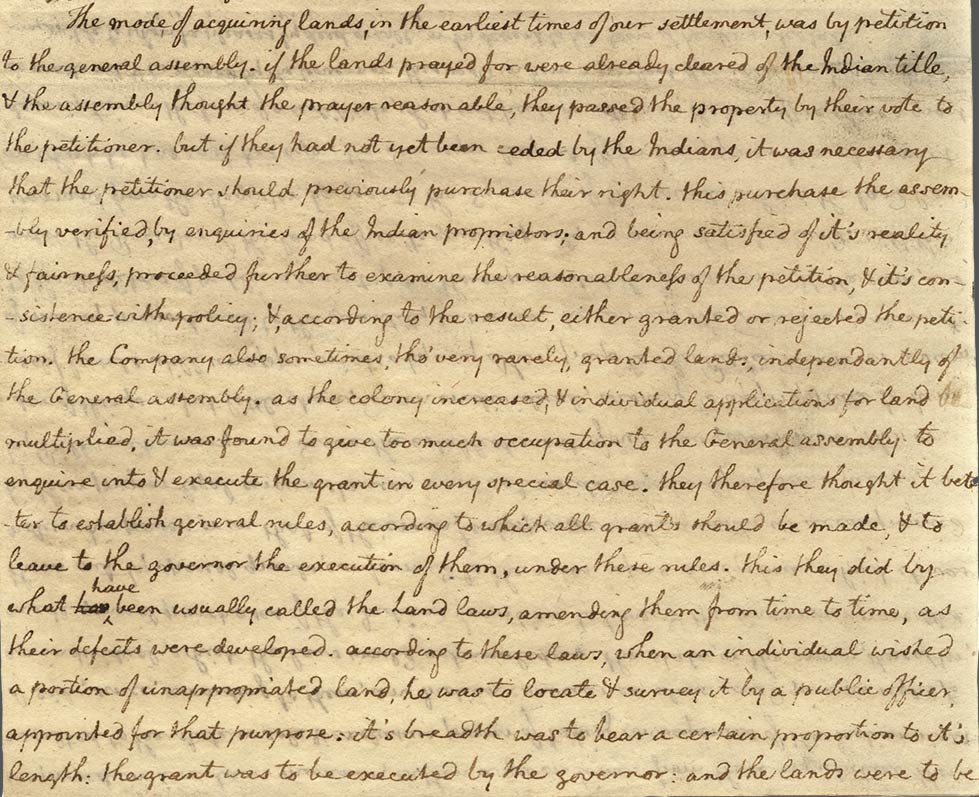 The mode of acquiring lands, in the earliest times of our settlement, was by petition
to the general assembly. if the lands prayed for were already cleared of the Indian title,
& the assembly thought the prayer reasonable, they passed the property by their vote to
the petitioner. but if they had not yet been ceded by the Indians, it was necessary
that the petitioner should previously purchase their right. this purchase the assem-
-bly verified, by enquiries of the Indian proprietors; and being satisfied of it's reality
& fairness, proceeded further to examine the reasonableness of the petition, & it's con-
-sistence with policy; &, according to the result, either granted or rejected the peti-
tion. the Company also sometimes, tho' very rarely, granted lands, independantly of
the General assembly. as the colony increased, & individual applications for land
multiplied, it was found to give too much occupation to the General assembly to
enquire into & execute the grant in every special case. they therefore thought it bet-
-ter to establish general rules, according to which all grants should be made, & to
leave to the governor the execution of them, under these rules. this they did by
what has have been usually called the Land laws, amending them from time to time, as
their defects were developed. according to these laws, when an individual wished
a portion of unappropriated land, he was to locate & survey it by a public officer,
appointed for that purpose: it's breadth was to bear a certain proportion to it's
length: the grant was to be executed by the governor: and the lands were to be